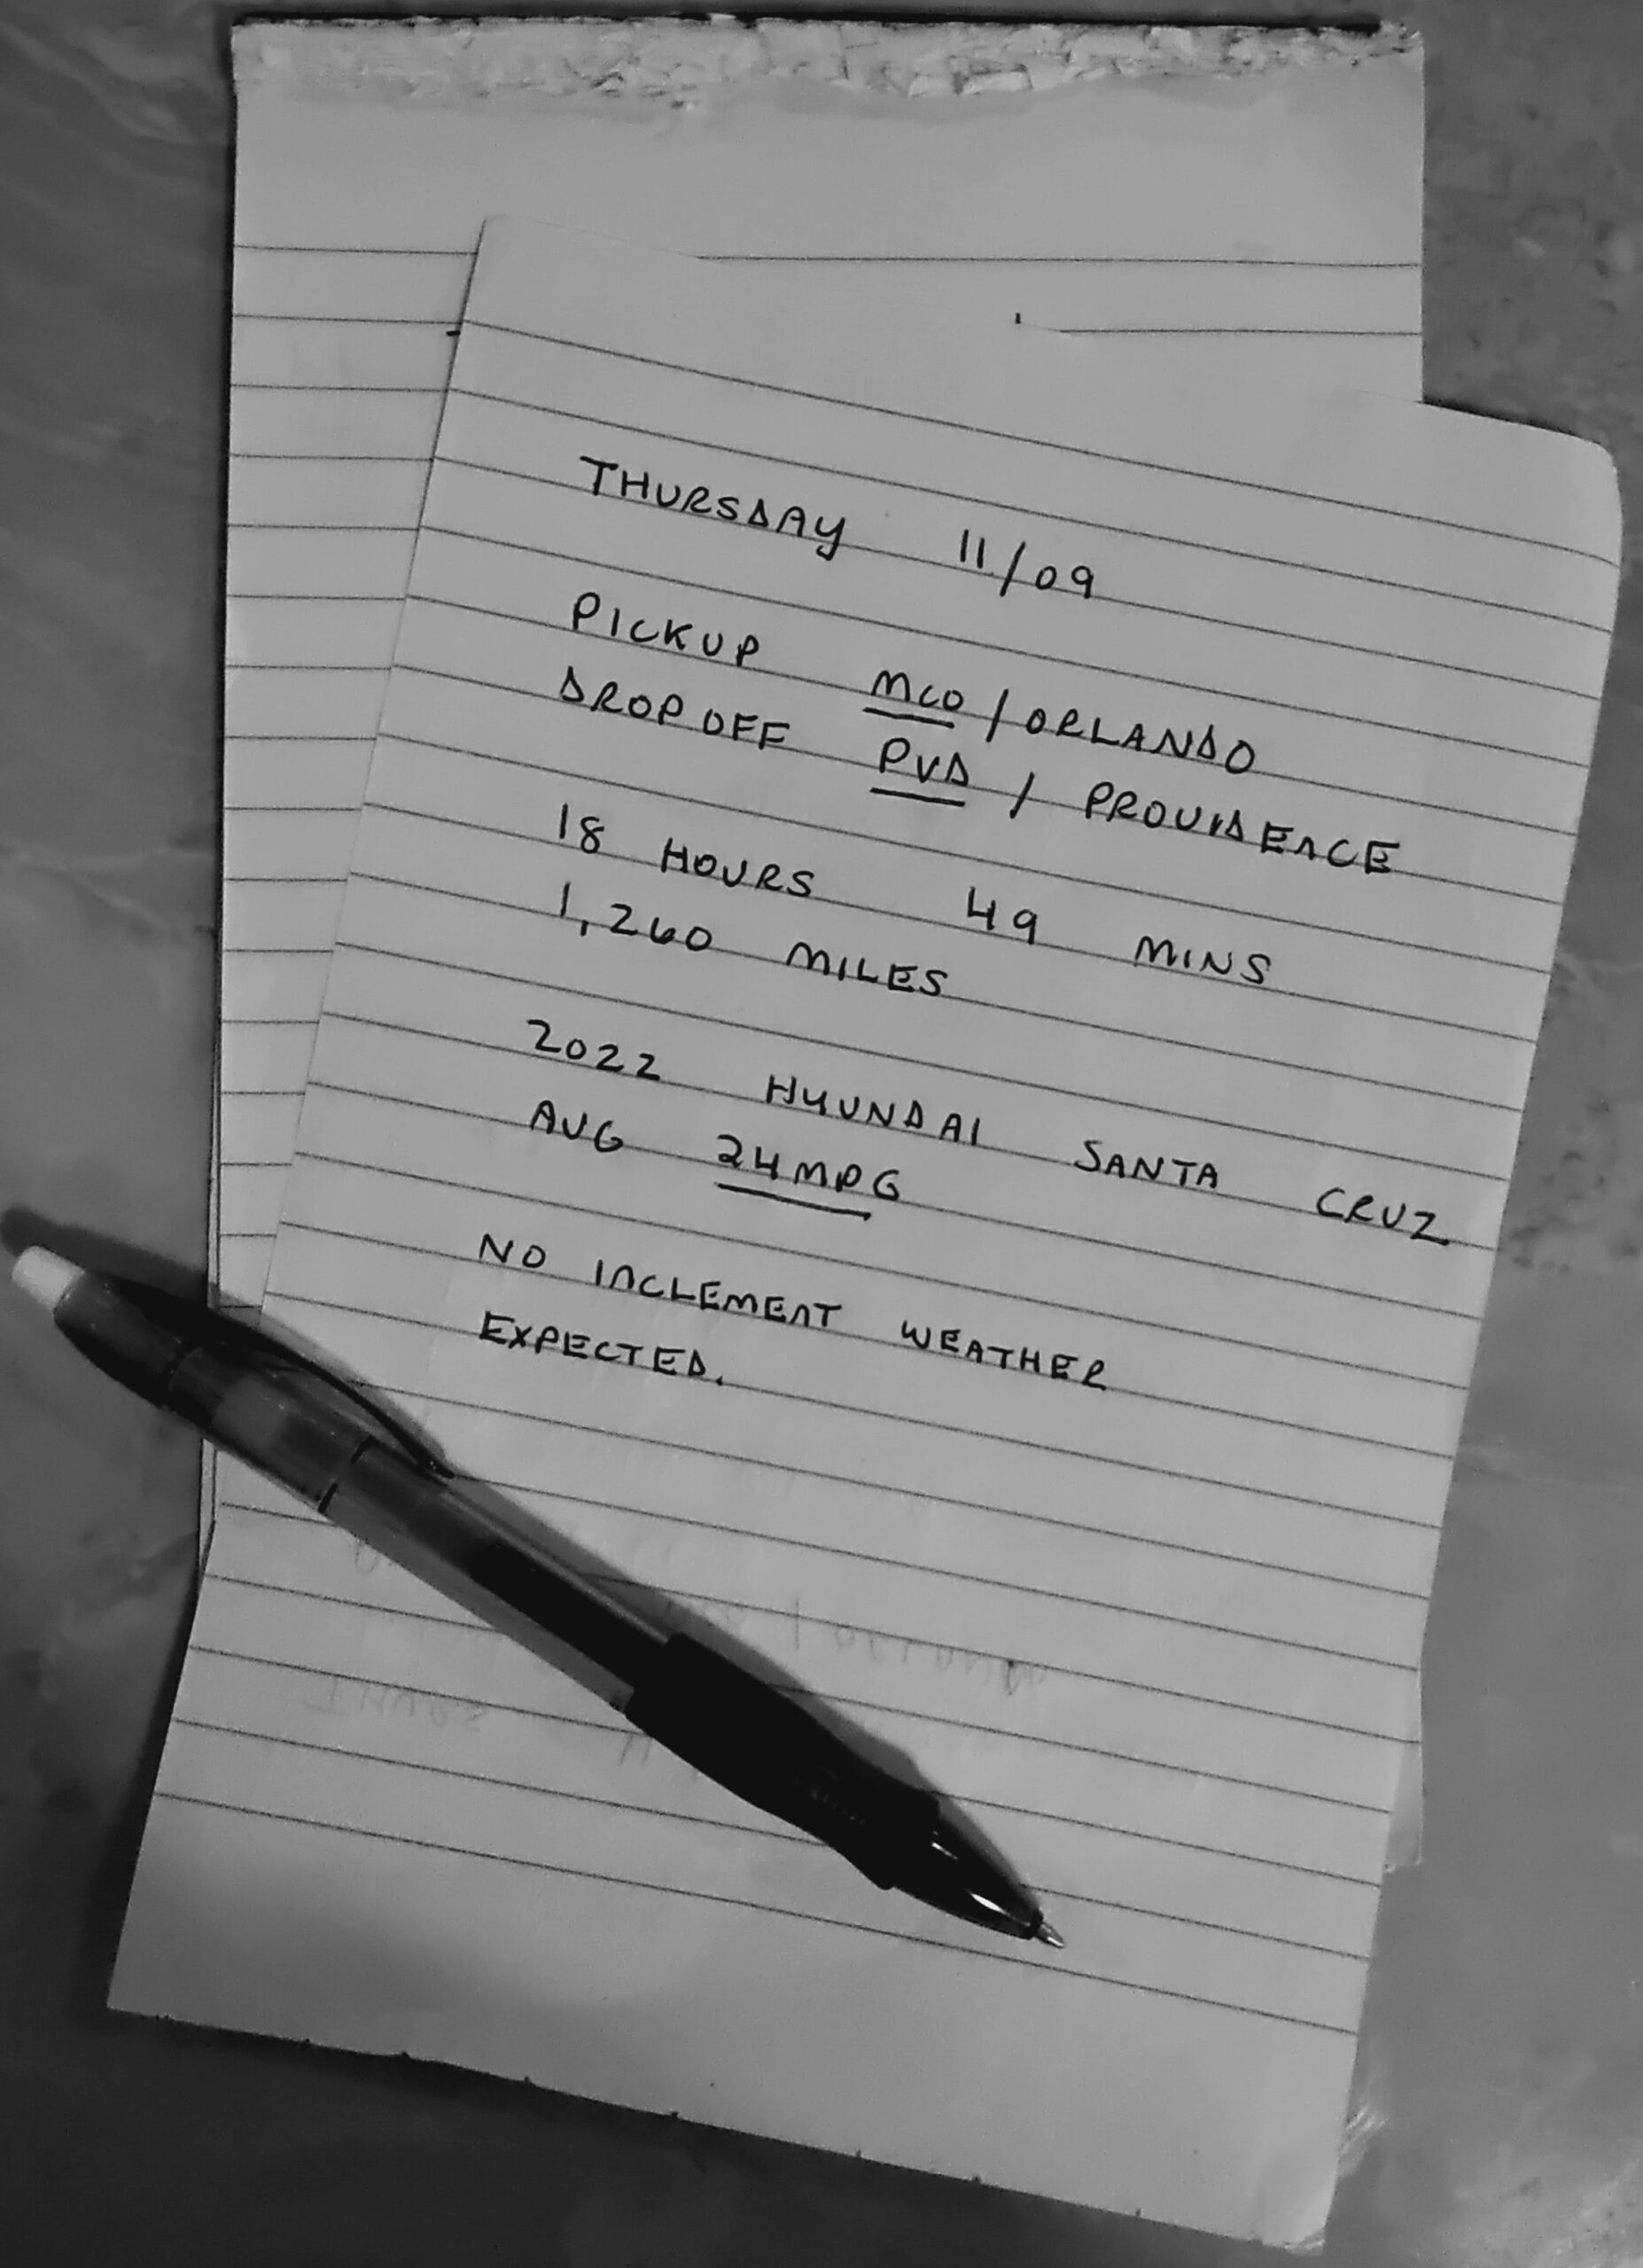 THURSDAY 11/09
PICKUP MCO / ORLANDO
DROP OFF PVD / PROVIDENCE
18 HOURS 49 MINS
1,260 MILES
2022 HYUNDAI SANTA CRUZ
AVG 24MPG
NO INCLEMENT WEATHER
EXPECTED.